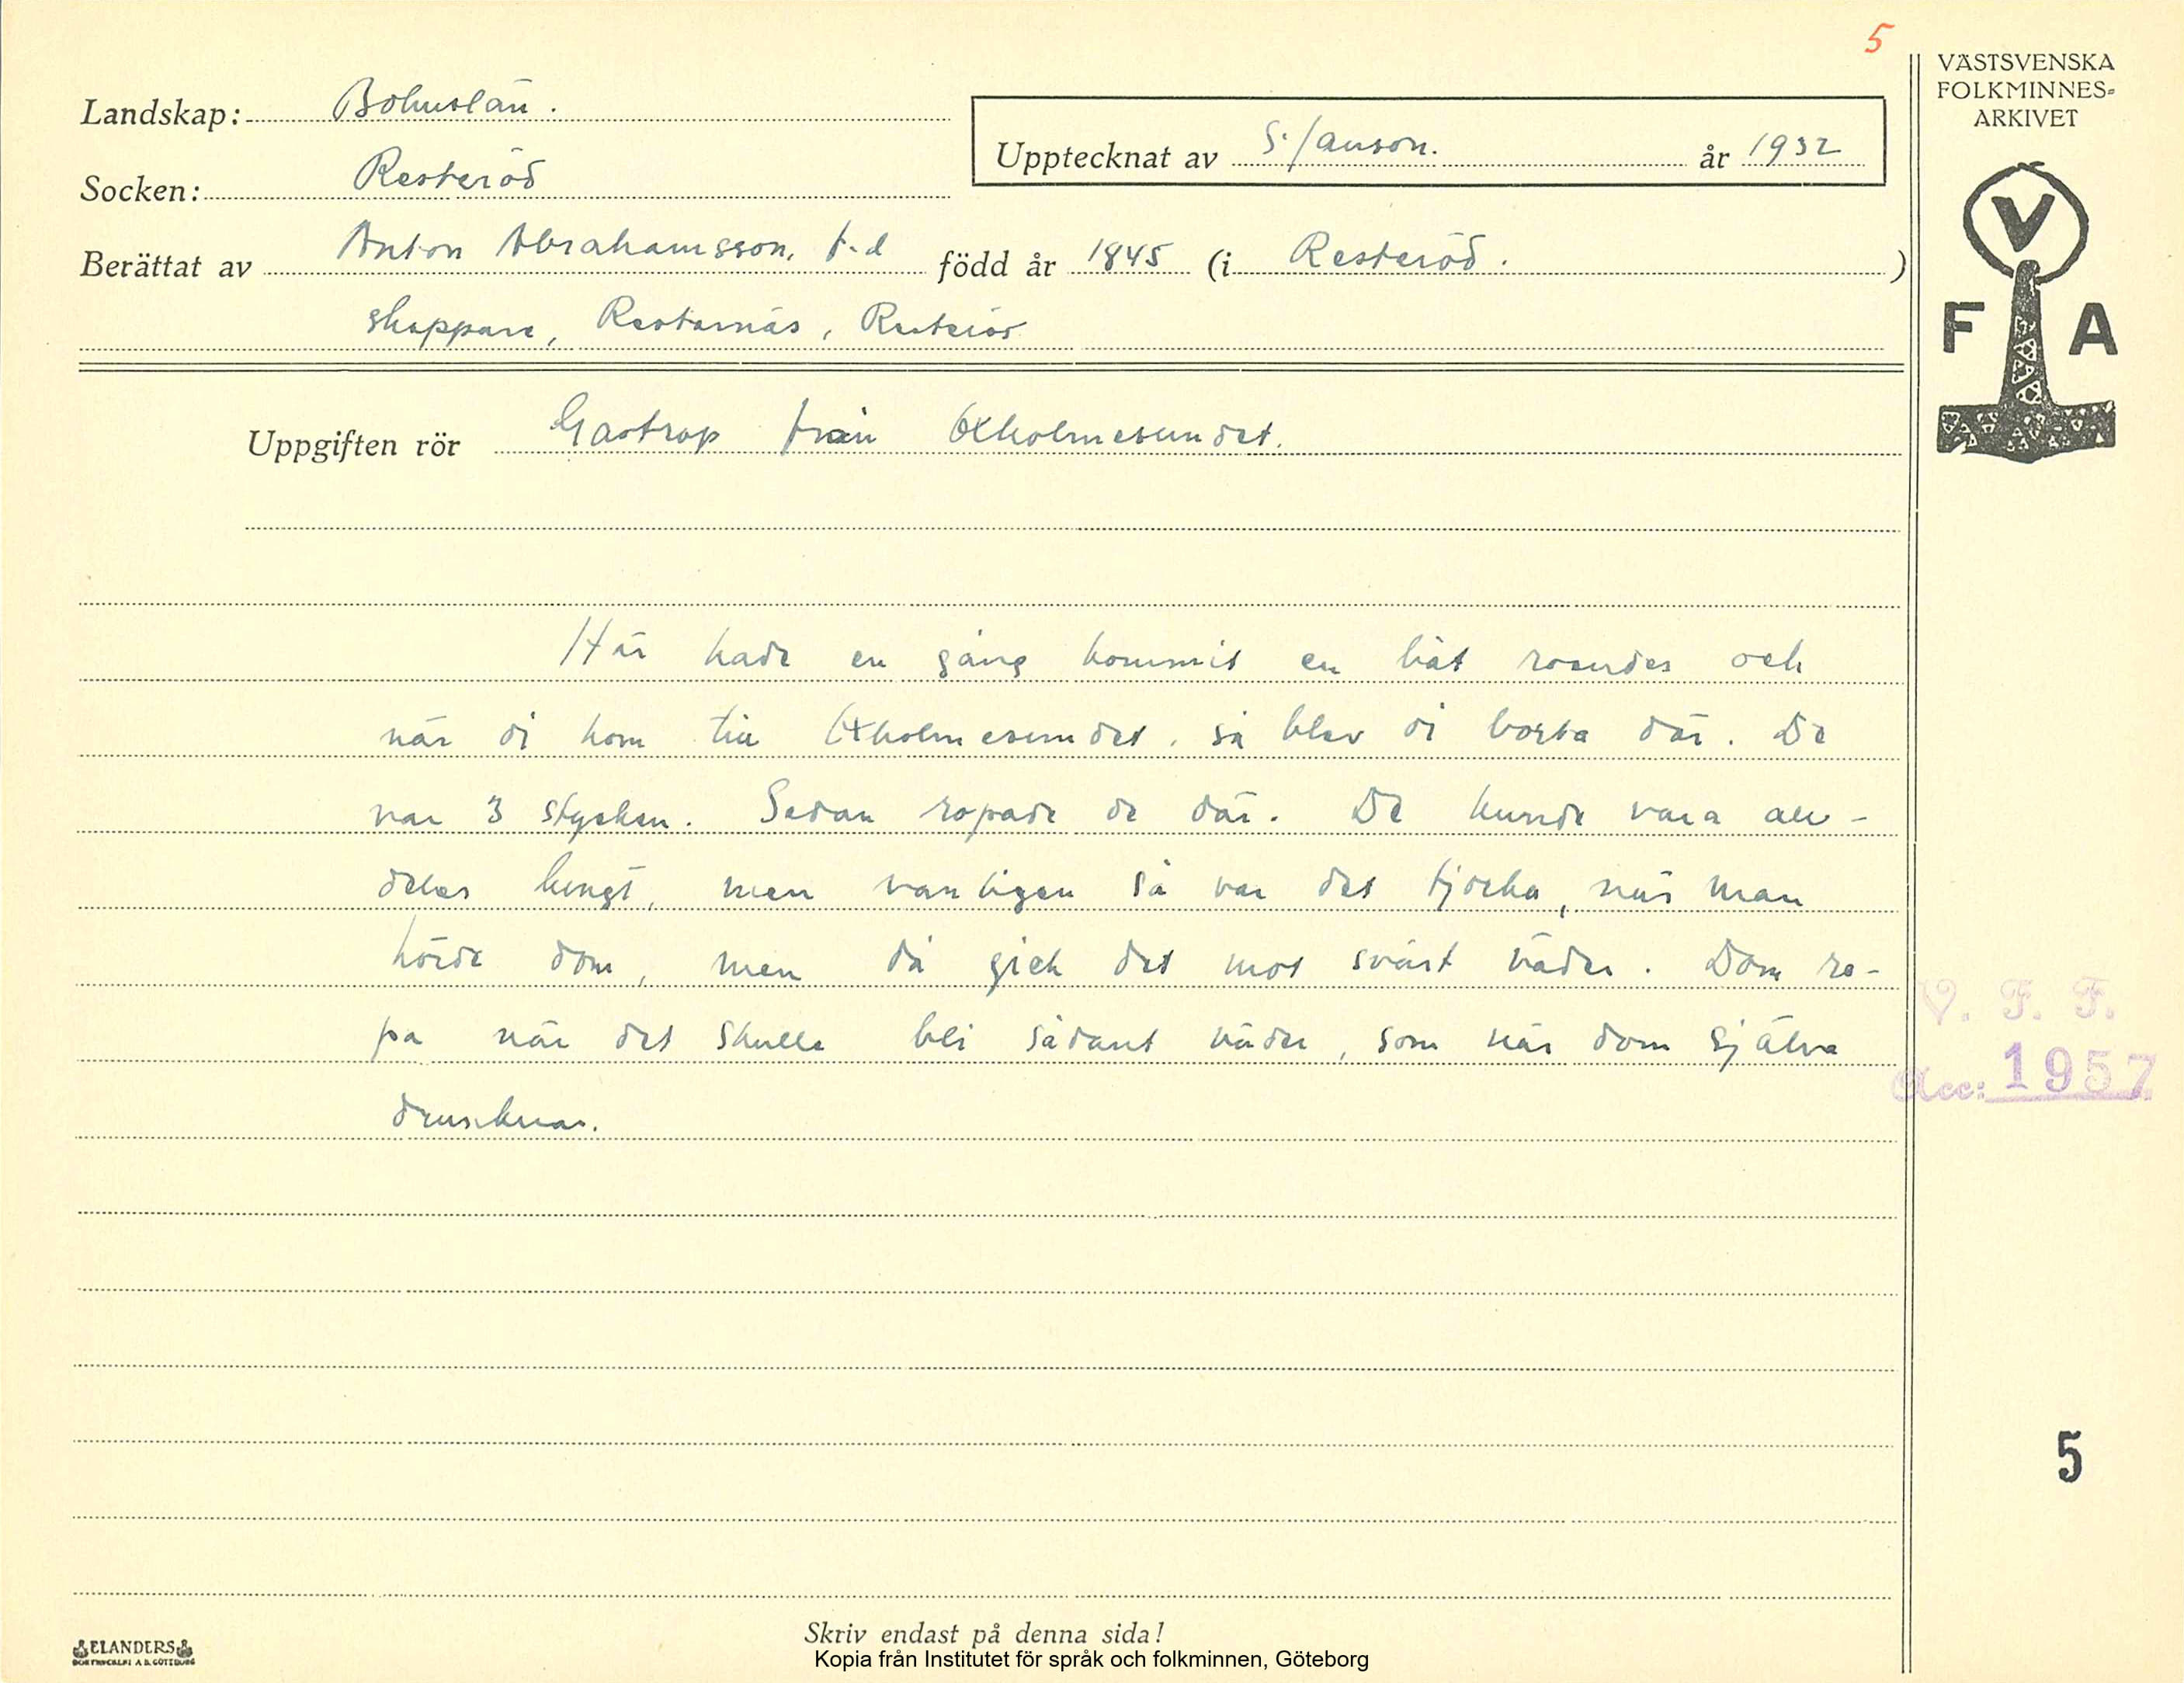 5
VÄSTSVENSKA
FOLKMINNES-
ARKIVET
Landskap: Bohuslän.
Upptecknat av S. Janson. år 1932
Socken: Resteröd
Berättat av Anton Abrahamsson, f.d född år 1845 (i Resteröd.)
skeppare, Restenäs, Resteröd
V
F A
Uppgiften rör Gastrop från Oxholmesundet.
Här hade en gång kommit en båt roendes och
när di kom till Oxholmesundet, så blev di borta där. De
var 3 stycken. Sedan ropade de där. De kunde vara all-
deles lungt, men vanligen så var det tjocka, när man
hörde dom, men då gick det mot svårt väder. Dom ro-
pa när det skulle bli sådant väder, som när dom själva
drunknar.
V. F. F.
Acc: 1957
5
Skriv endast på denna sida!
ELANDERS
BOKTRYCKERI A.B. GÖTEBORG
Kopia från Institutet för språk och folkminnen, Göteborg